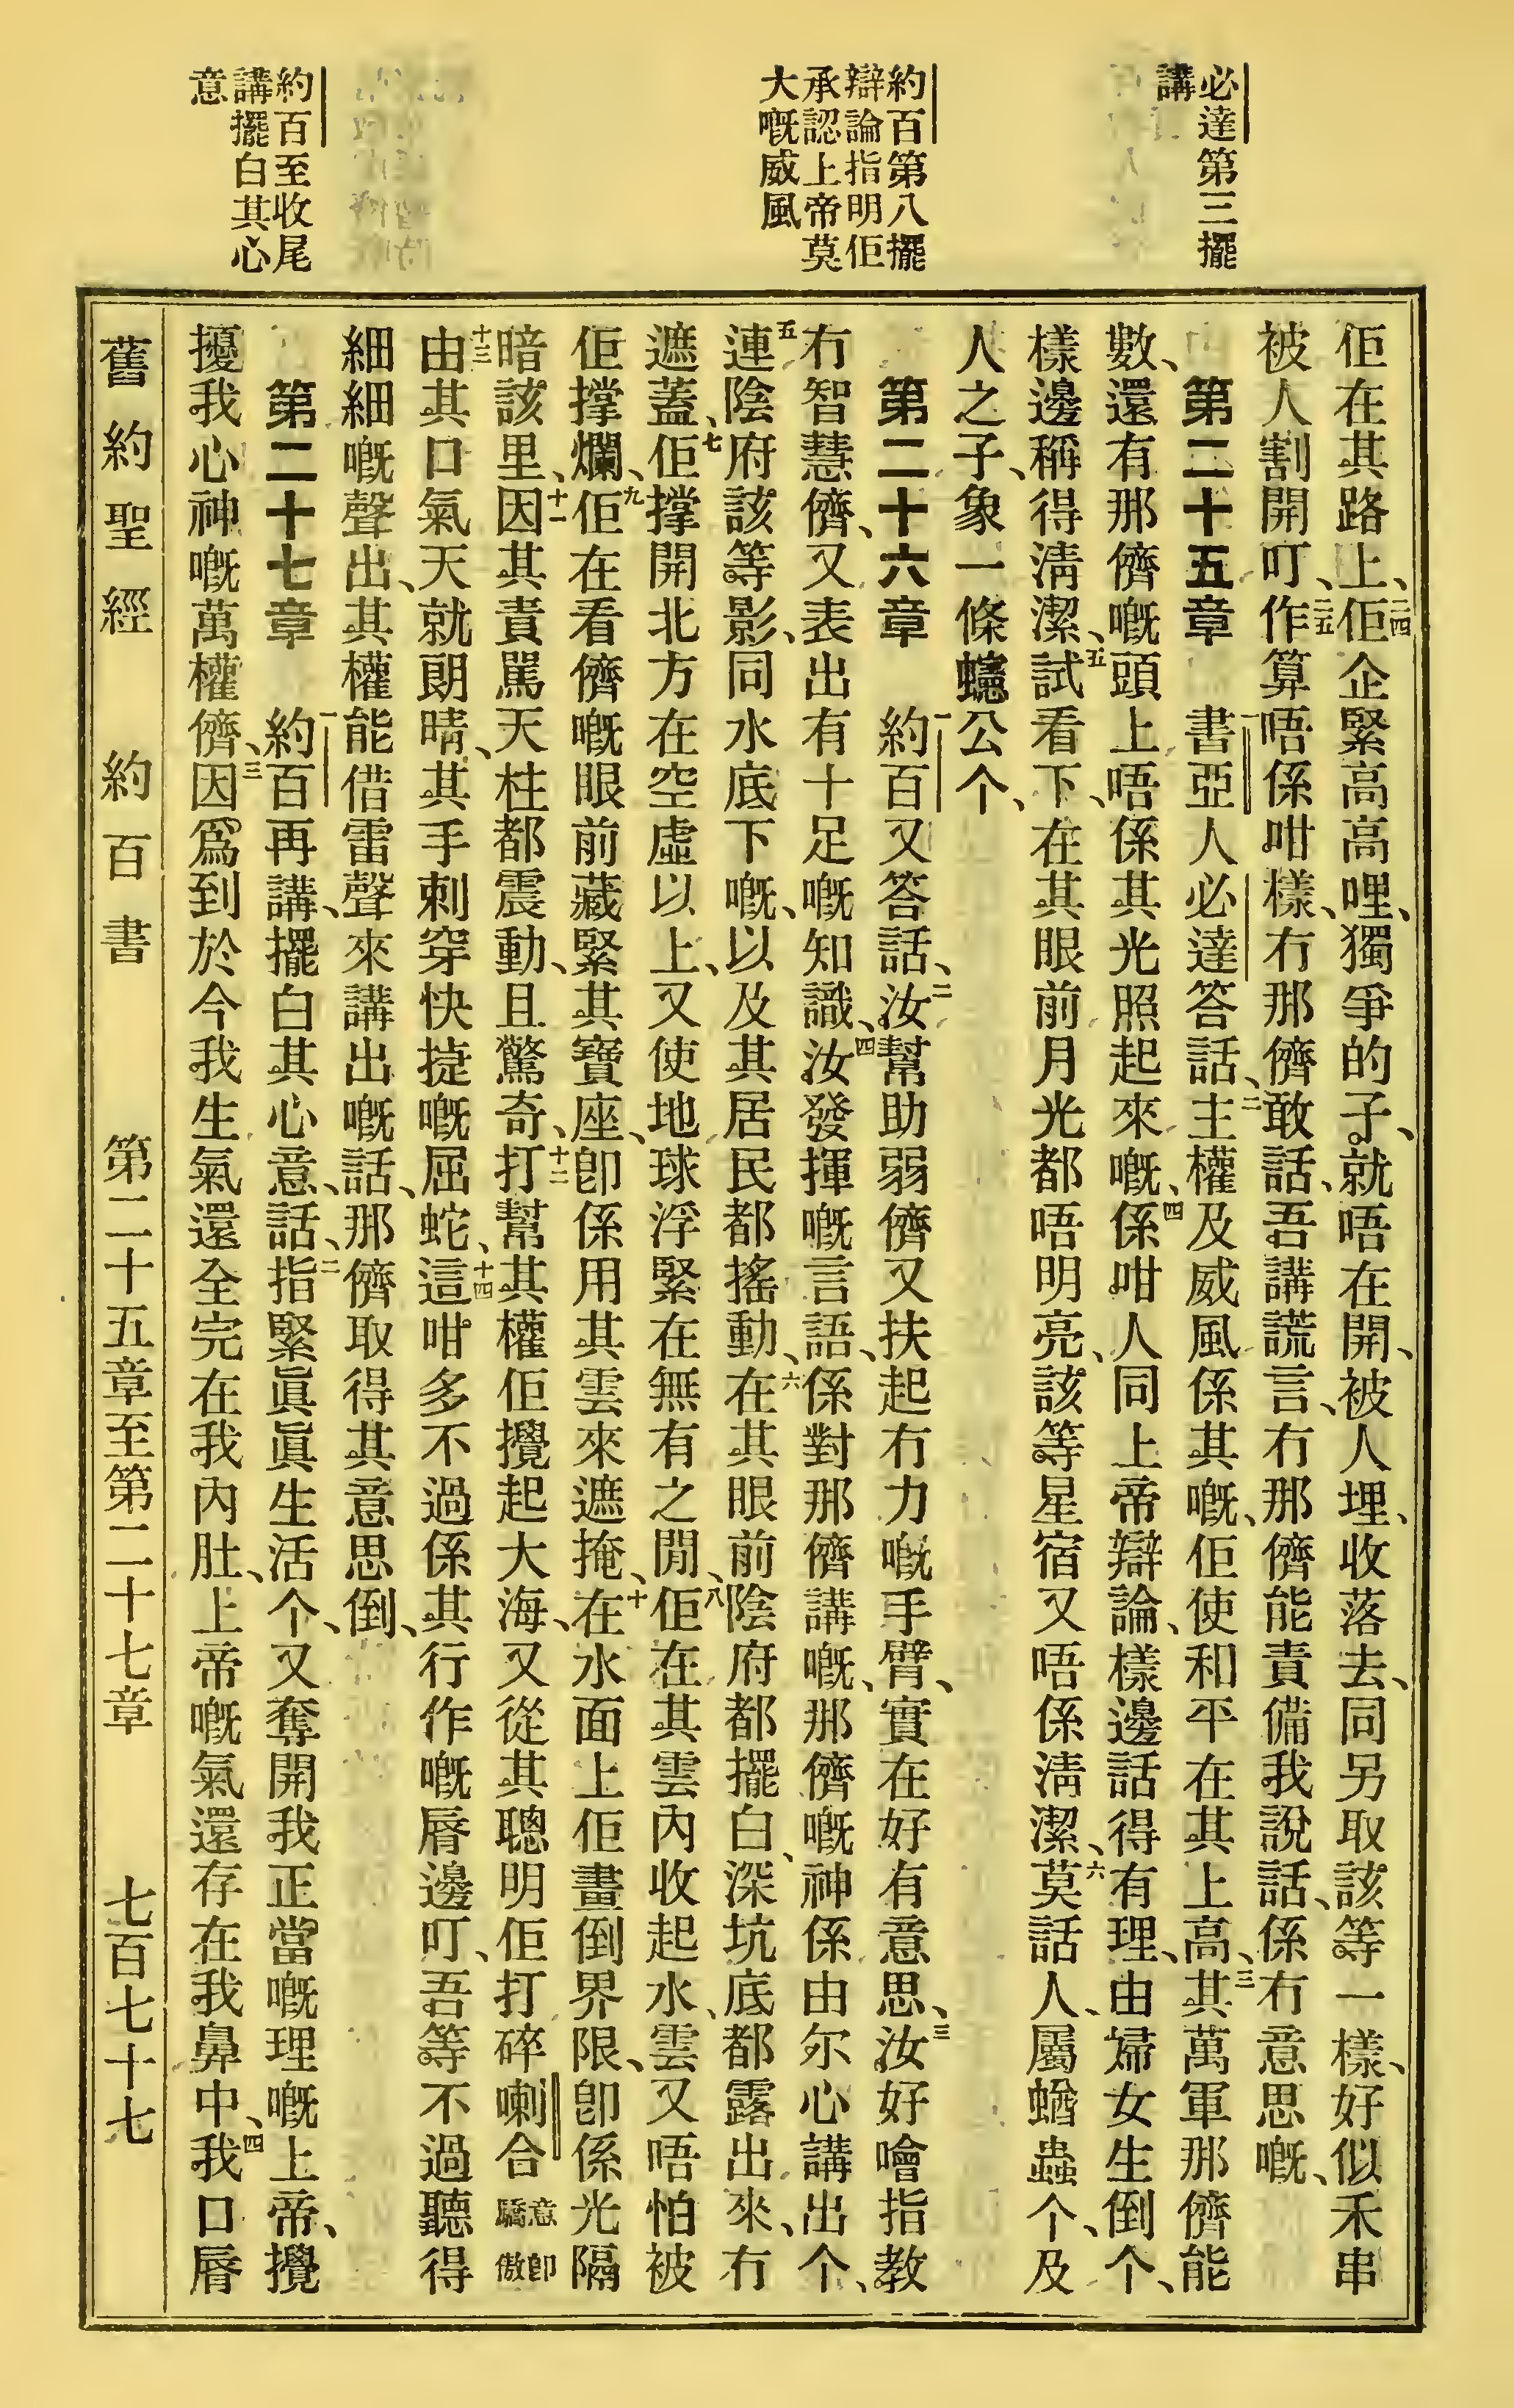 必達第三擺
講
約百第八擺
辯論指明佢
承認上帝莫
大嘅威風
約百至收尾
講擺白其心
意
佢在其路上、二四佢企緊高高哩、獨爭的子、就唔在開、被人埋、收落去、同另取該等一樣、好似禾串
被人割開叮、二五作算唔係咁樣、冇那儕敢話、吾講謊言、冇那儕能責備我說話、係冇意思嘅、
第二十五章　一書亞人必達答話、二主權及威風係其嘅、佢使和平在其上高、三其萬軍那儕能
數、還有那儕嘅頭上唔係其光照起來嘅、四係咁人同上帝辯論、樣邊話得有理、由婦女生倒个、
樣邊稱得淸潔、五試看下、在其眼前月光都唔明亮、該等星宿又唔係淸潔、六莫話人、屬蝤蟲个、及
人之子、象一條蟪公个、
第二十六章　一約百又答話、二汝幫助弱儕又扶起冇力嘅手臂、實在好有意思、三汝好噲指教
冇智慧儕、又表出有十足嘅知識、四汝發揮嘅言語、係對那儕講嘅、那儕嘅神係由尔心講出个、
五連陰府該等影、同水底下嘅、以及其居民都搖動、六在其眼前陰府都擺白、深坑底都露出來、冇
遮蓋、七佢撑開北方在空虛以上、又使地球浮緊在無有之閒、八佢在其雲內收起水、雲又唔怕被
佢撑爛、九佢在看儕嘅眼前藏緊其寶座、卽係用其雲來遮掩、十在水面上佢畫倒界限、卽係光隔
暗該里、十一因其責駡天柱都震動、且驚奇、十二打幫其權佢攪起大海、又從其聰明佢打碎喇合意卽驕傲
十三由其口氣天就朗晴、其手刺穿快㨗嘅屈蛇、十四這咁多不過係其行作嘅脣邊叮、吾等不過聽得
細細嘅聲出、其權能借雷聲來講出嘅話、那儕取得其意思倒、
第二十七章　一約百再講、擺白其心意、話、二指緊眞眞生活个、又奪開我正當嘅理嘅上帝、攪
擾我心神嘅萬權儕、三因爲到於今我生氣還全完在我內肚、上帝嘅氣還存在我鼻中、四我口脣
舊約聖經　約百書　第二十五章至第二十七章　七百七十七